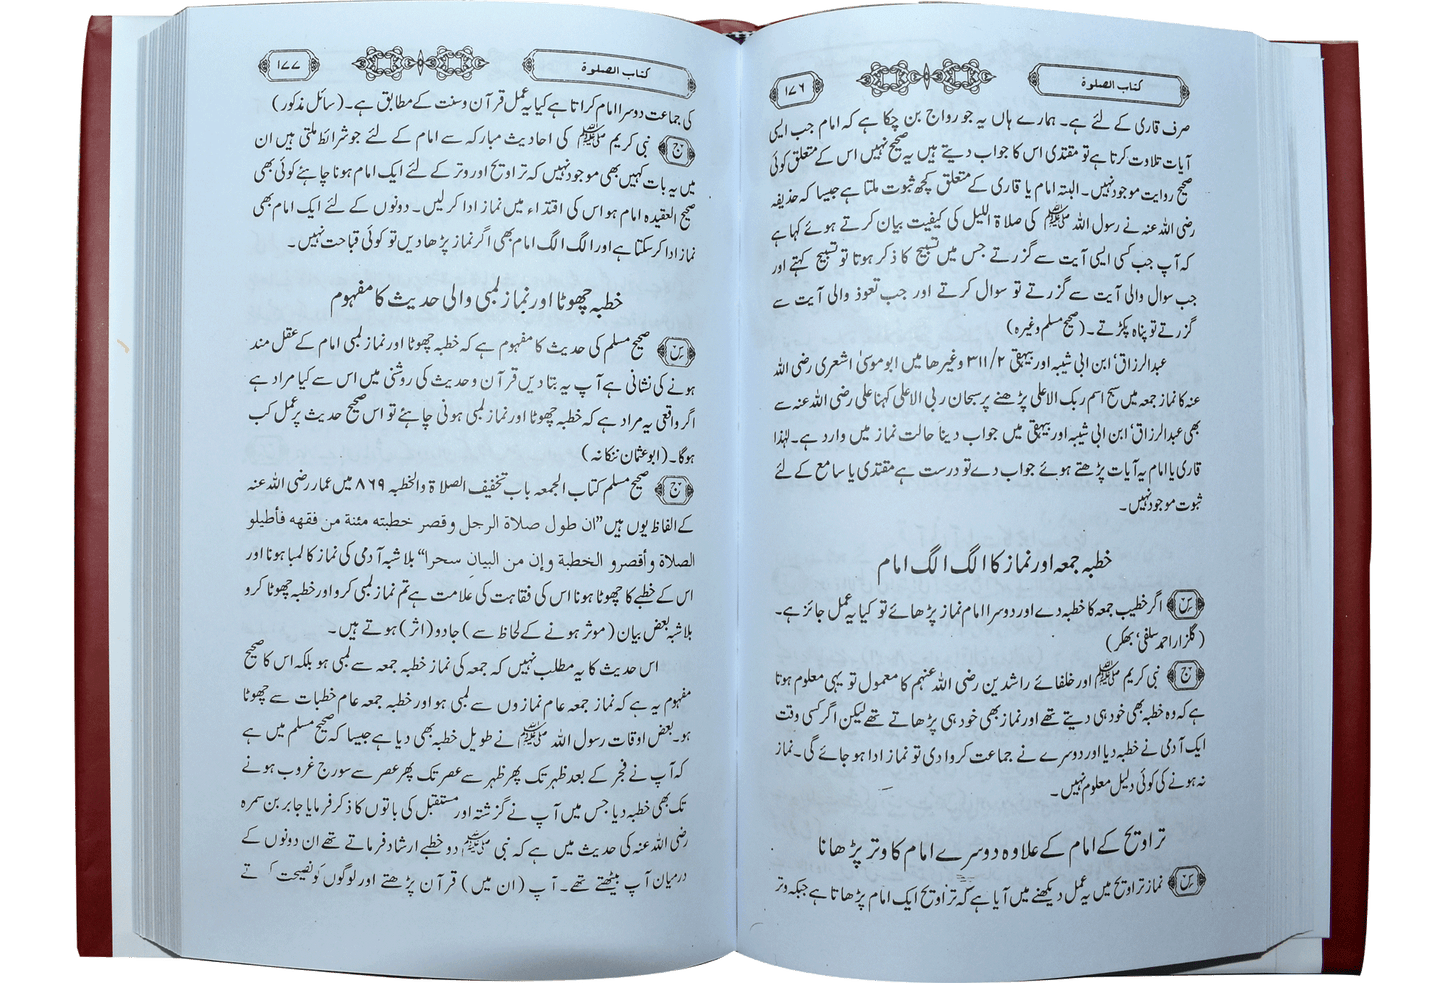 کتاب الصلوٰة
١٧٦
صرف قاری کے لئے ہے۔ ہمارے ہاں یہ جو رواج بن چکا ہے کہ امام جب ایسی
آیات تلاوت کرتا ہے تو مقتدی اس کا جواب دیتے ہیں یہ صحیح نہیں اس کے متعلق کوئی
صحیح روایت موجود نہیں۔ البتہ امام یا قاری کے متعلق کچھ ثبوت ملتا ہے جیسا کہ حذیفہ
رضی اللہ عنہ نے رسول اللہ ﷺ کی صلاة اللیل کی کیفیت بیان کرتے ہوئے کہا ہے
کہ آپ جب کسی ایسی آیت سے گزرتے جس میں تسبیح کا ذکر ہوتا تو تسبیح کہتے اور
جب سوال والی آیت سے گزرتے تو سوال کرتے اور جب تعوذ والی آیت سے
گزرتے تو پناہ پکڑتے۔ (صحیح مسلم وغیرہ)
عبدالرزاق‘ ابن ابی شیبہ اور بیہقی ٣١١/٢ وغیرھا میں ابو موسیٰ اشعری رضی اللہ
عنہ کا نماز جمعہ میں سبح اسم ربک الاعلی پڑھنے پر سبحان ربی الاعلی کہنا علی رضی اللہ عنہ سے
بھی عبدالرزاق‘ ابن ابی شیبہ اور بیہقی میں جواب دینا حالت نماز میں وارد ہے۔ لہٰذا
قاری یا امام یہ آیات پڑھتے ہوئے جواب دے تو درست ہے مقتدی یا سامع کے لئے
ثبوت موجود نہیں۔
خطبہ جمعہ اور نماز کا الگ الگ امام
س اگر خطیب جمعہ کا خطبہ دے اور دوسرا امام نماز پڑھائے تو کیا یہ عمل جائز ہے۔
(گلزار احمد سلفی‘ بھکر)
ج نبی کریم ﷺ اور خلفائے راشدین رضی اللہ عنہم کا معمول تو یہی معلوم ہوتا
ہے کہ وہ خطبہ بھی خود ہی دیتے تھے اور نماز بھی خود ہی پڑھاتے تھے لیکن اگر کسی وقت
ایک آدمی نے خطبہ دیا اور دوسرے نے جماعت کروا دی تو نماز ادا ہو جائے گی۔ نماز
نہ ہونے کی کوئی دلیل معلوم نہیں۔
تراویح کے امام کے علاوہ دوسرے امام کا وتر پڑھانا
س نماز تراویح میں یہ عمل دیکھنے میں آیا ہے کہ تراویح ایک امام پڑھاتا ہے جبکہ وتر
کتاب الصلوٰة
١٧٧
کی جماعت دوسرا امام کراتا ہے کیا یہ عمل قرآن و سنت کے مطابق ہے۔ (سائل مذکور)
ج نبی کریم ﷺ کی احادیث مبارکہ سے امام کے لئے جو شرائط ملتی ہیں ان
میں یہ بات کہیں بھی موجود نہیں کہ تراویح اور وتر کے لئے ایک امام ہونا چاہئے کوئی بھی
صحیح العقیدہ امام ہو اس کی اقتداء میں نماز ادا کر لیں۔ دونوں کے لئے ایک امام بھی
نماز ادا کر سکتا ہے اور الگ الگ امام بھی اگر نماز پڑھا دیں تو کوئی قباحت نہیں۔
خطبہ چھوٹا اور نماز لمبی والی حدیث کا مفہوم
س صحیح مسلم کی حدیث کا مفہوم ہے کہ خطبہ چھوٹا اور نماز لمبی امام کے عقل مند
ہونے کی نشانی ہے آپ یہ بتا دیں قرآن و حدیث کی روشنی میں اس سے کیا مراد ہے
اگر واقعی یہ مراد ہے کہ خطبہ چھوٹا اور نماز لمبی ہونی چاہئے تو اس صحیح حدیث پر عمل کب
ہوگا۔ (ابو عثمان ننکانہ)
ج صحیح مسلم کتاب الجمعہ باب تخفیف الصلاة والخطبہ ٨٦٩ میں عمار رضی اللہ عنہ
کے الفاظ یوں ہیں ”ان طول صلاة الرجل وقصر خطبته مئنة من فقهه فأطيلو
الصلاة وأقصرو الخطبة وإن من البيان سحرا“ بلاشبہ آدمی کی نماز کا لمبا ہونا اور
اس کے خطبے کا چھوٹا ہونا اس کی فقاہت کی علامت ہے تم نماز لمبی کرو اور خطبہ چھوٹا کرو
بلاشبہ بعض بیان (موثر ہونے کے لحاظ سے) جادو (اثر) ہوتے ہیں۔
اس حدیث کا یہ مطلب نہیں کہ جمعہ کی نماز خطبہ جمعہ سے لمبی ہو بلکہ اس کا صحیح
مفہوم یہ ہے کہ نماز جمعہ عام نمازوں سے لمبی ہو اور خطبہ جمعہ عام خطبات سے چھوٹا
ہو۔ بعض اوقات رسول اللہ ﷺ نے طویل خطبہ بھی دیا ہے جیسا کہ صحیح مسلم میں ہے
کہ آپ نے فجر کے بعد ظہر تک پھر ظہر سے عصر تک پھر عصر سے سورج غروب ہونے
تک بھی خطبہ دیا جس میں آپ نے گزشتہ اور مستقبل کی باتوں کا ذکر فرمایا جابر بن سمرہ
رضی اللہ عنہ کی حدیث میں ہے کہ نبی ﷺ دو خطبے ارشاد فرماتے تھے ان دونوں کے
درمیان آپ بیٹھتے تھے۔ آپ (ان میں) قرآن پڑھتے اور لوگوں کو نصیحت کرتے